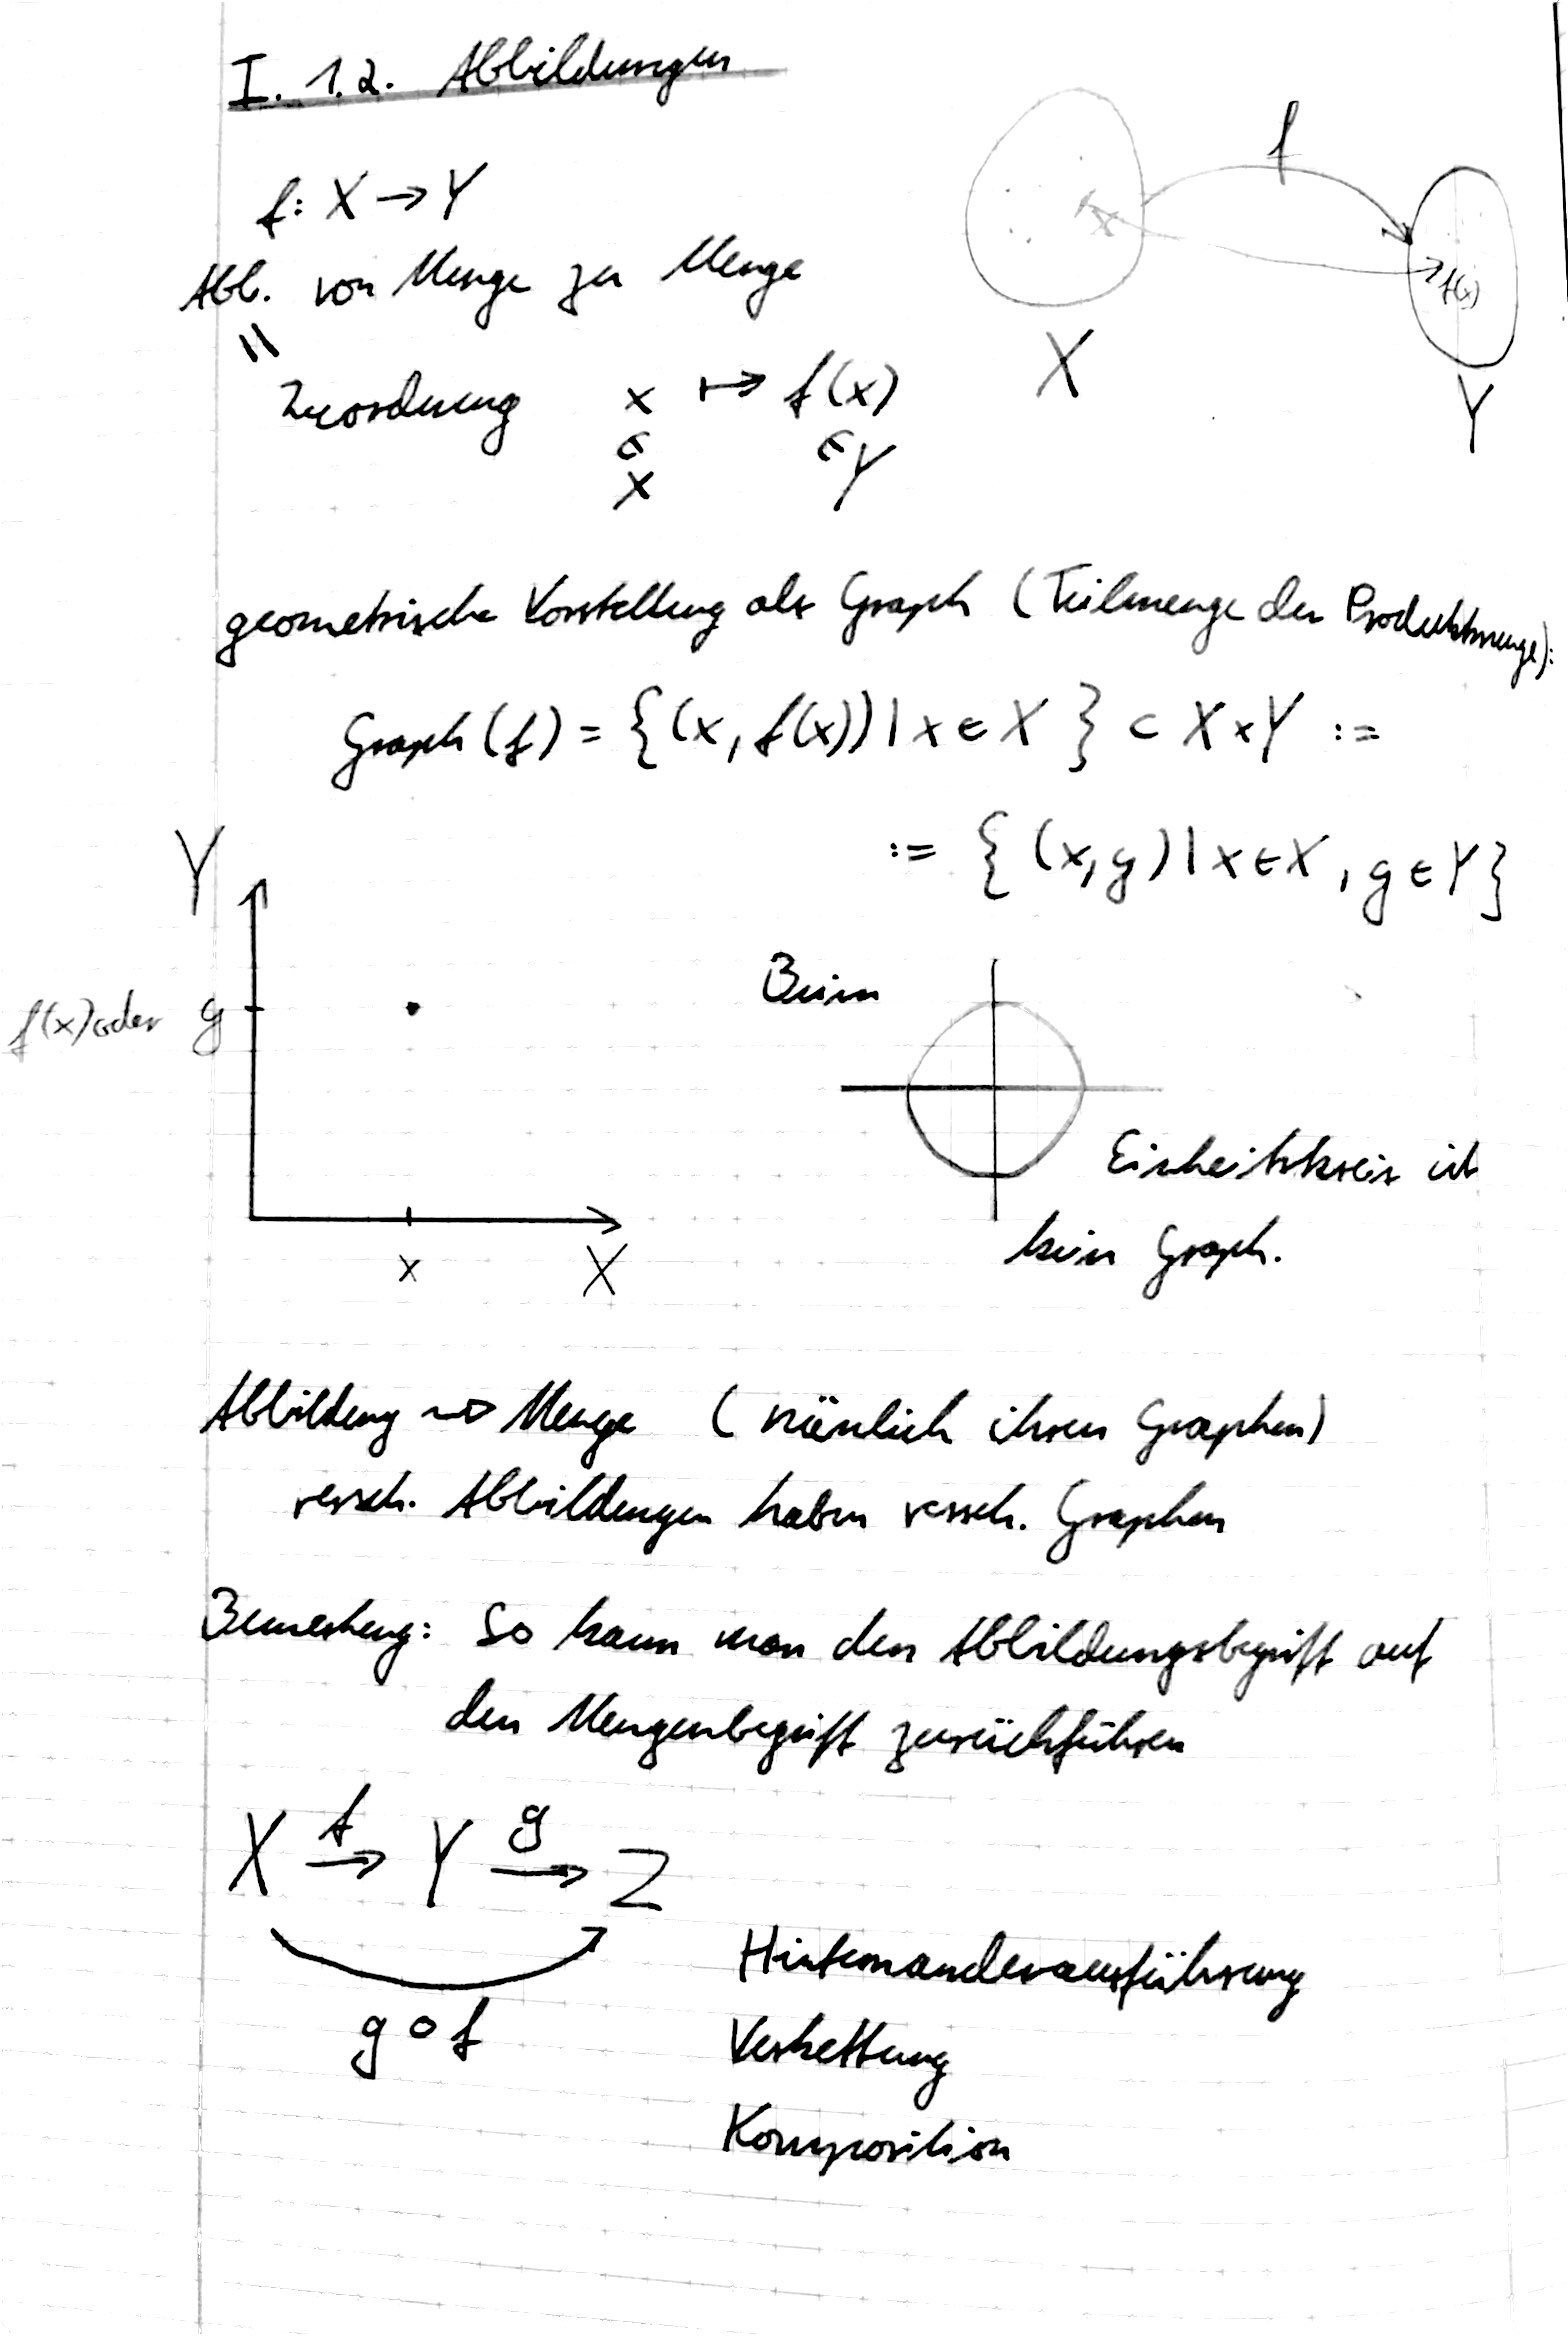 I. 1.2. Abbildungen
f: X → Y
f
Abb. von Menge zu Menge
x
f(x)
X
Y
=
Zuordnung x ↦ f(x)
∈ ∈
X Y
geometrische Vorstellung als Graph (Teilmenge der Produktmenge):
Graph(f) = {(x, f(x)) | x ∈ X} ⊂ X × Y :=
:= {(x, y) | x ∈ X, y ∈ Y}
Y
f(x) oder y
x X
Beim
Einheitskreis ist
kein Graph.
Abbildung ⇝ Menge (nämlich ihren Graphen)
versch. Abbildungen haben versch. Graphen
Bemerkung: So kann man den Abbildungsbegriff auf
den Mengenbegriff zurückführen
X →f Y →g Z
g ∘ f
Hintereinanderausführung
Verkettung
Komposition